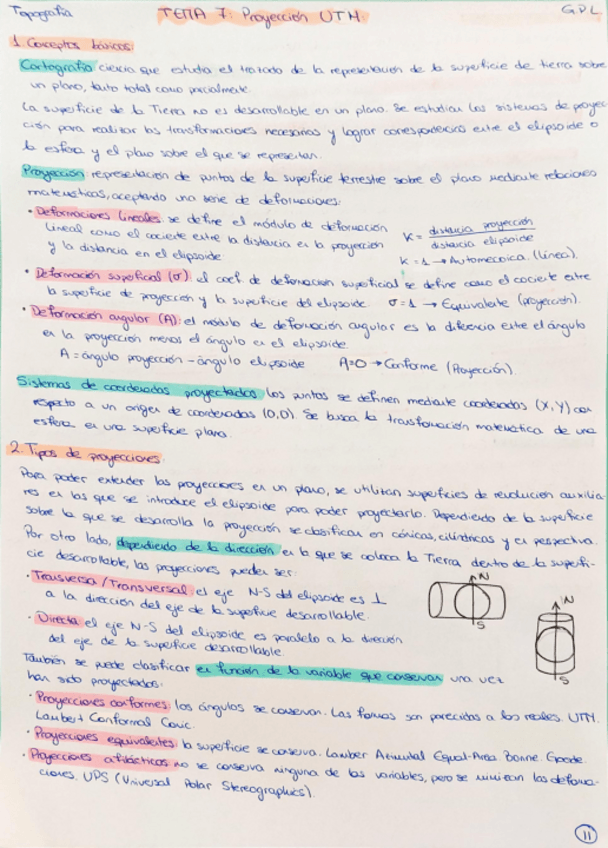 Topografía
TEMA 7: Proyección UTM.
G.D.L
1. Conceptos básicos:
Cartografía: ciencia que estudia el tratado de la representación de la superficie de tierra sobre
un plano, tanto total como parcialmente.
La superficie de la Tierra no es desarrollable en un plano. Se estudian los sistemas de proyec-
ción para realizar las transformaciones necesarias y lograr correspondencia entre el elipsoide o
la esfera y el plano sobre el que se representan.
Proyección: representación de puntos de la superficie terrestre sobre el plano mediante relaciones
matemáticas, aceptando una serie de deformaciones:
· Deformaciones lineales: se define el módulo de deformación
lineal como el cociente entre la distancia en la proyección
y la distancia en el elipsoide
K = distancia proyección
distancia elipsoide
K = 1 → Automecoica. (lineal).
· Deformación superficial (σ): el coef. de deformación superficial se define como el cociente entre
la superficie de proyección y la superficie del elipsoide. σ = 1 → Equivalente (proyección).
· Deformación angular (A): el módulo de deformación angular es la diferencia entre el ángulo
en la proyección menos el ángulo en el elipsoide.
A = ángulo proyección - ángulo elipsoide A=0 → Conforme (Proyección).
Sistemas de coordenadas proyectadas: los puntos se definen mediante coordenadas (X, Y) con
respecto a un origen de coordenadas (0,0). Se busca la transformación matemática de una
esfera en una superficie plana.
2. Tipos de proyecciones.
Para poder extender las proyecciones en un plano, se utilizan superficies de revolución auxilia-
res en las que se introduce el elipsoide para poder proyectarlo. Dependiendo de la superficie
sobre la que se desarrolla la proyección se clasifican en cónicas, cilíndricas y en perspectiva.
Por otro lado, dependiendo de la dirección en la que se coloca la Tierra dentro de la superfi-
cie desarrollable, las proyecciones pueden ser:
· Trasversa / Transversal: el eje N-S del elipsoide es ⊥
a la dirección del eje de la superficie desarrollable.
· Directa: el eje N-S del elipsoide es paralelo a la dirección
del eje de la superficie desarrollable.
N
S
N
S
También se puede clasificar en función de la variable que conservan una vez
han sido proyectados:
· Proyecciones conformes: los ángulos se conservan. Las formas son parecidas a las reales. UTM.
Lambert Conformal Conic.
· Proyecciones equivalentes: la superficie se conserva. Lamber Azimutal Equal-Area. Bonne. Goode.
· Proyecciones afilácticas: no se conserva ninguna de las variables, pero se minimizan las deforma-
ciones. UPS (Universal Polar Stereographics).
11